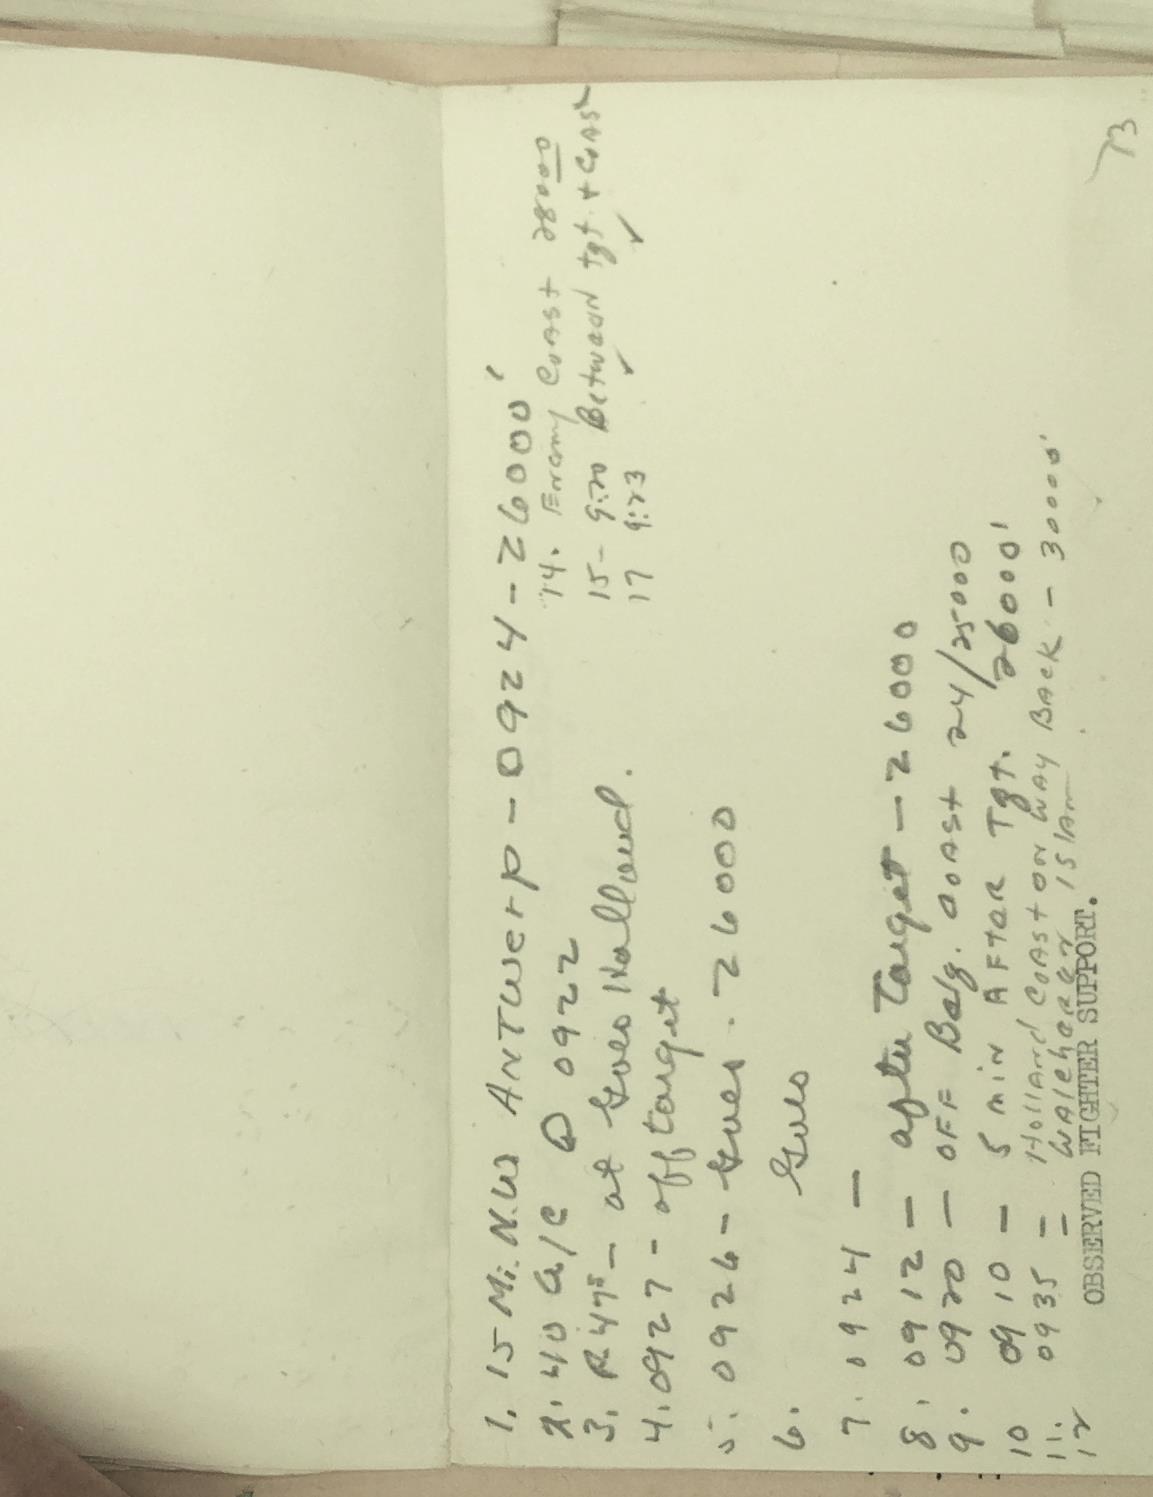 1. 15 Mi. N.W ANTWerp - 0924 - 26000'
2. 40 A/C @ 0922
3. P47s - at Goes Holland.
4. 0927 - off target
5. 0926 - Goes. 26000
6. Goes
7. 0924 -
8. 0912 - after Target - 26000
9. 0920 - OFF Belg. COAST 24/25000
10 0910 - 5 MIN AFTER Tgt. 26000'
11. 0935 - HollANd COAST ON WAY BACK - 30000'
12 = WAlcHereN ISlAN
14. ENemy COAST 28000
15 - 9:20 BetweeN tgt. + COAST
17 9:23 ✓ ✓
OBSERVED FIGHTER SUPPORT.
73